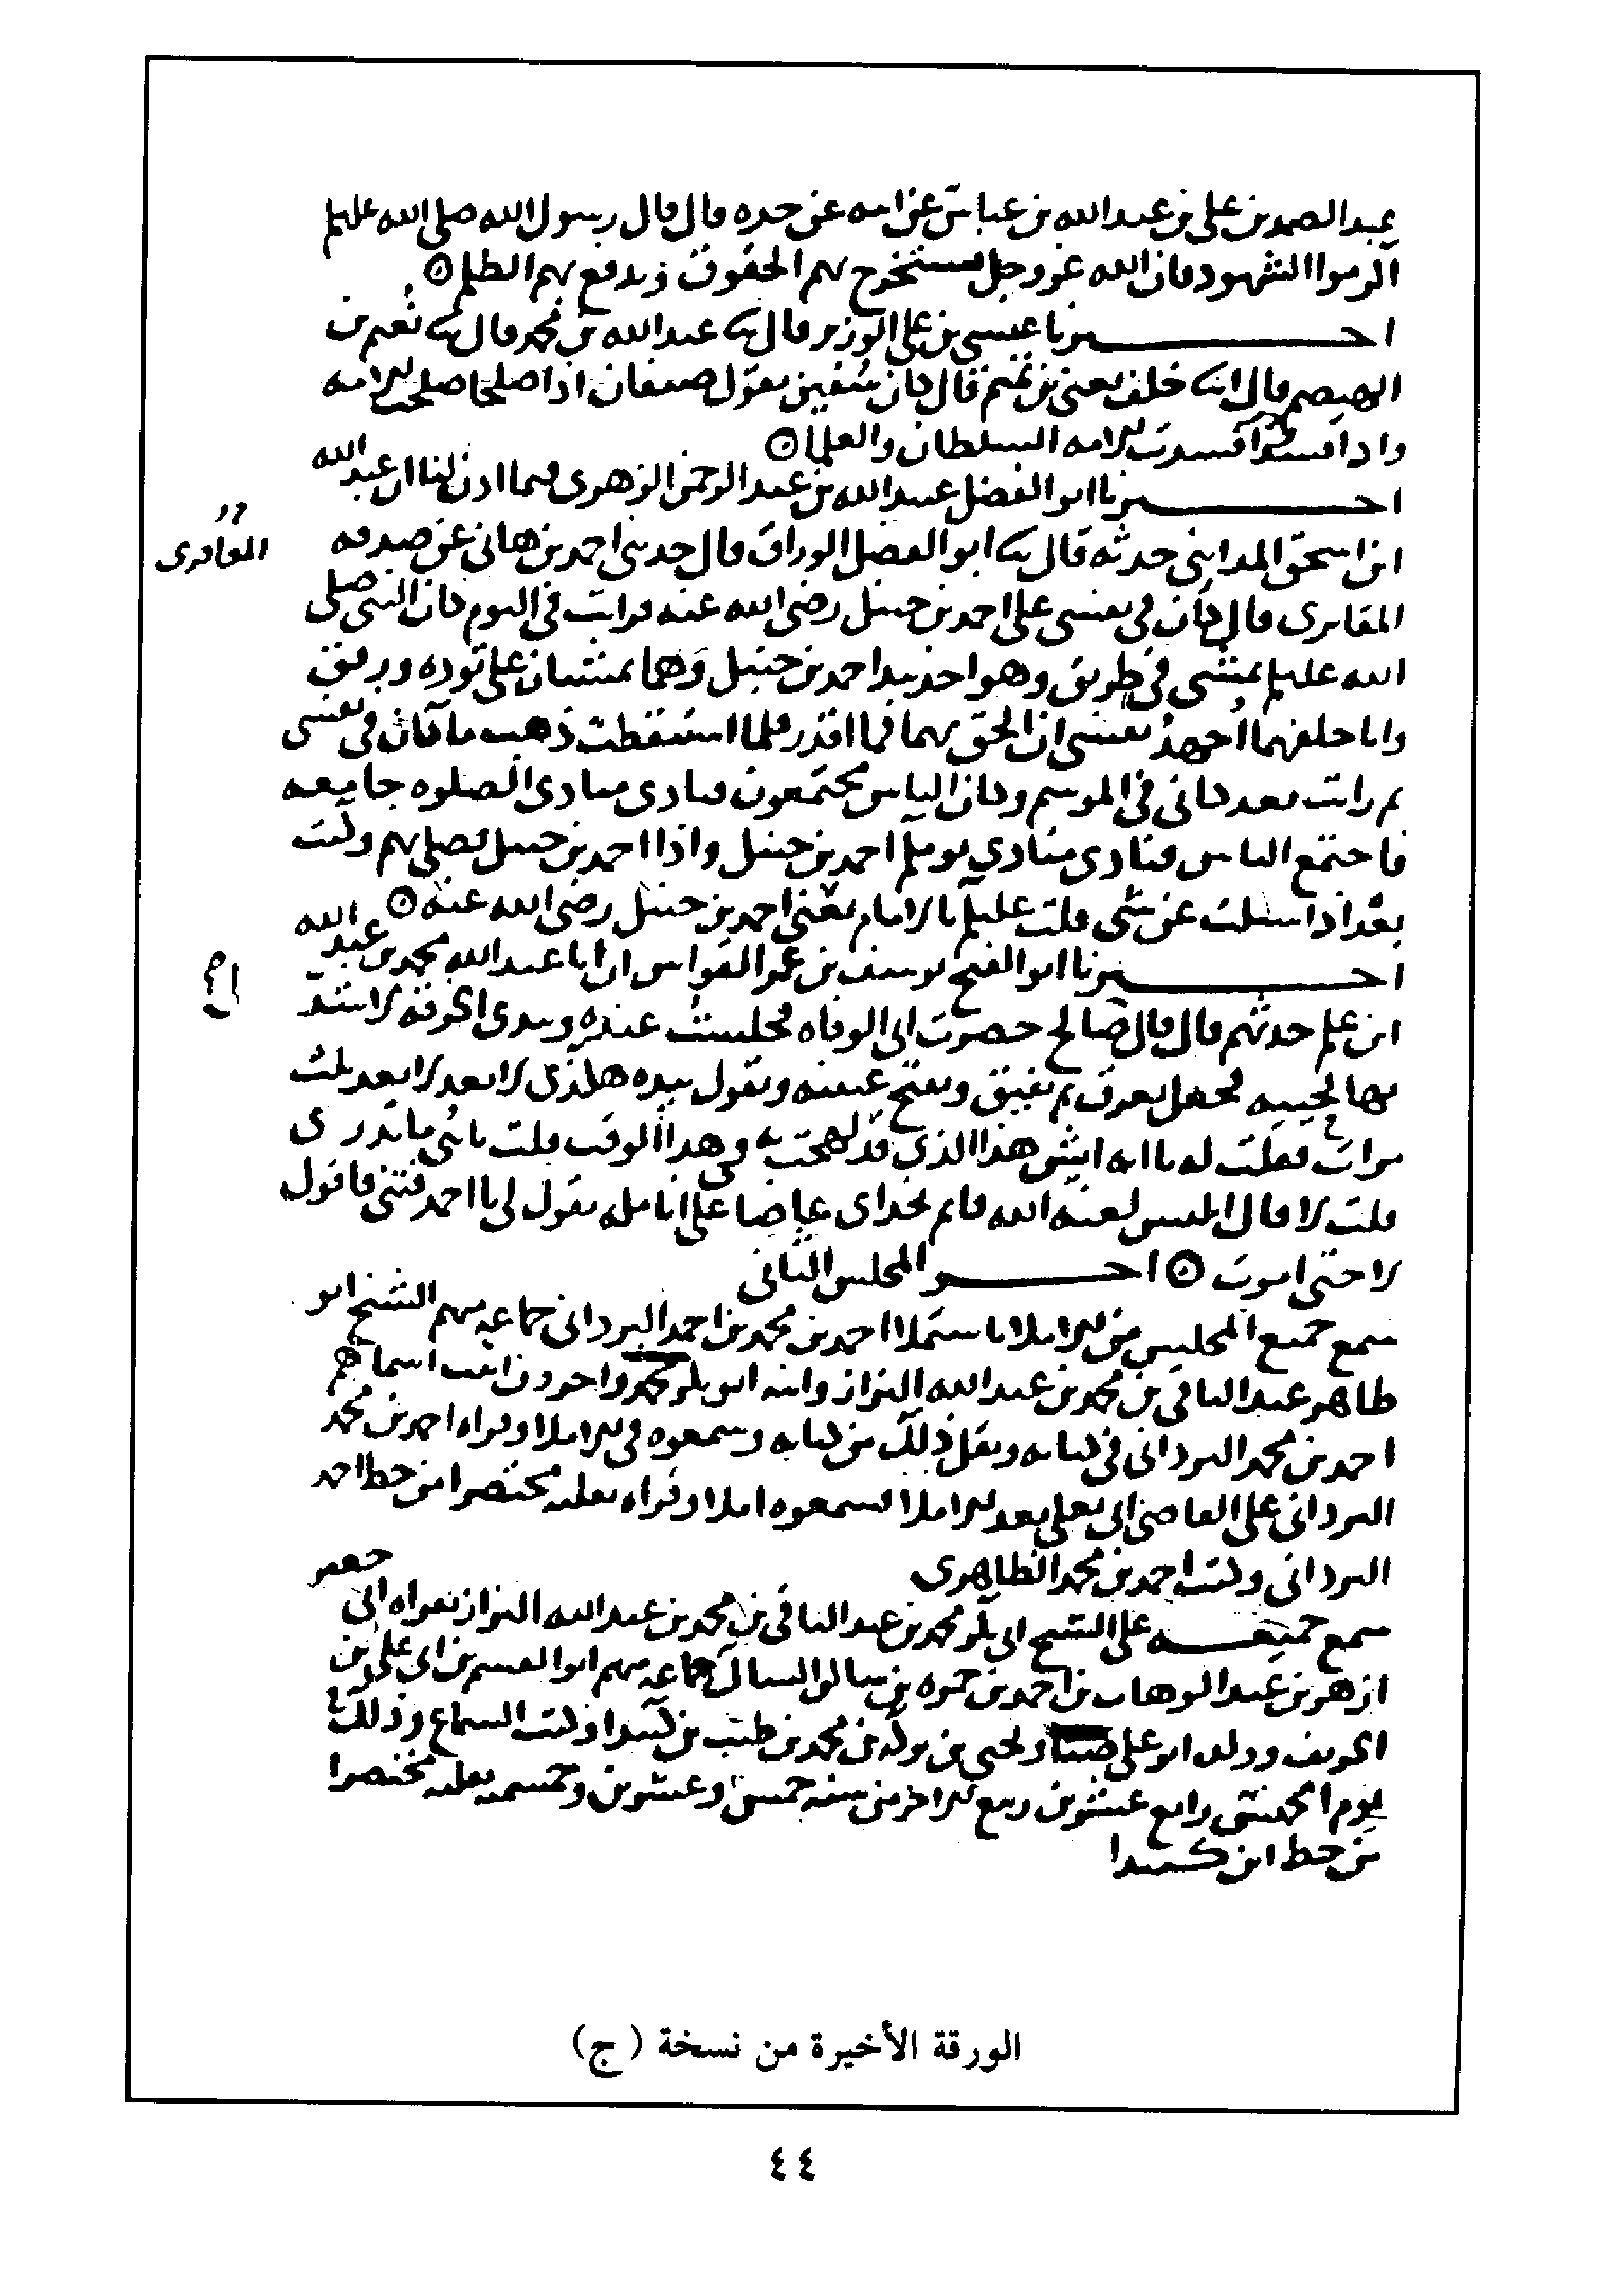 عبد الصمد بن علي بن عبد الله بن عباس عن ابيه عن جده قال قال رسول الله صلى الله عليه وسلم
اكرموا الشهود فان الله عز وجل يستخرج بهم الحقوق ويدفع بهم الظلم
اخبرنا عيسى بن علي الوزير قال ثنا عبد الله بن محمد قال ثنا نعيم بن
الهيصم قال انا خلف يعني بن تميم قال كان سفين يقول صنفان اذا صلحا صلحت الامة
واذا فسدا فسدت الامة السلطان والعلما
اخبرنا ابو الفضل عبيد الله بن عبد الرحمن الزهري فيما اذن لنا ان عبد الله
ابن اسحق المدايني حدثه قال ثنا ابو الفضل الوراق قال حدثني احمد بن هاني عن صدقه
المقابري قال كان في نفسي على احمد بن حنبل رضي الله عنه فرايت في النوم كان النبي صلى
الله عليه وسلم يمشي في طريق وهو اخذ بيد احمد بن حنبل وهما يمشيان على توده ورفق
وانا خلفهما اجهد نفسي ان الحق بهما فما اقدر فلما استيقظت ذهب ما كان في نفسي
ثم رايت بعد كاني في الموسم وكان الناس مجتمعون فنادى منادي الصلوه جامعه
فاجتمع الناس فنادى منادي يومكم احمد بن حنبل واذا احمد بن حنبل فصلى بهم وكنت
بعد اذا سئلت عن شي قلت عليكم بالامام يعني احمد بن حنبل رضي الله عنه
اخبرنا ابو الفتح يوسف بن عمر القواس ان ابا عبد الله محمد بن عبد الله
ابن علم حدثهم قال قال صالح حضرت ابي الوفاه فجلست عنده وبيدي الخرقه لاشد
بها لحييه فجعل يعرق ثم يفيق ويفتح عينيه ويقول بيده هكذي لا بعد لا بعد ثلث
مرات فقلت له يا ابه ايش هذا الذي قد لهجت به في هذا الوقت قلت يا بني ما تدري
قلت لا قال ابليس لعنه الله قايم بحذاي عاضا على انامله يقول لي يا احمد فتني فاقول
لا حتى اموت اخر المجلس الثاني
سمع جميع المجلس من الاملا باستملا احمد بن محمد بن احمد البرداني جماعه منهم الشيخ ابو
طاهر عبد الباقي بن محمد بن عبد الله البزاز وابنه ابو بكر محمد واخرون اثبت اسماهم
احمد بن محمد البرداني في كتابه ونقل ذلك من كتابه وسمعوه في الاملا وقراه احمد بن محمد
البرداني على القاضي ابي يعلى بعد الاملا فسمعوه املا وقراه نقلته مختصرا من خط احمد
البرداني وكتب احمد بن محمد الظاهري
سمع جميعه على الشيخ ابي بكر محمد بن عبد الباقي بن محمد بن عبد الله البزاز بقراه ابي جعفر
ازهر بن عبد الوهاب بن احمد بن حمزه بن السماك جماعه منهم ابو القسم بن ابي علي بن
الخريف وولده ابو علي ويحيى بن بركه بن محمد بن طيب بن كتب السماع وذلك
يوم الخميس رابع عشرين ربيع الاخر من سنه خمس وعشرين وخمسميه نقلته مختصرا
من خط ابن
المعافري
الورقة الأخيرة من نسخة (ج)
٤٤